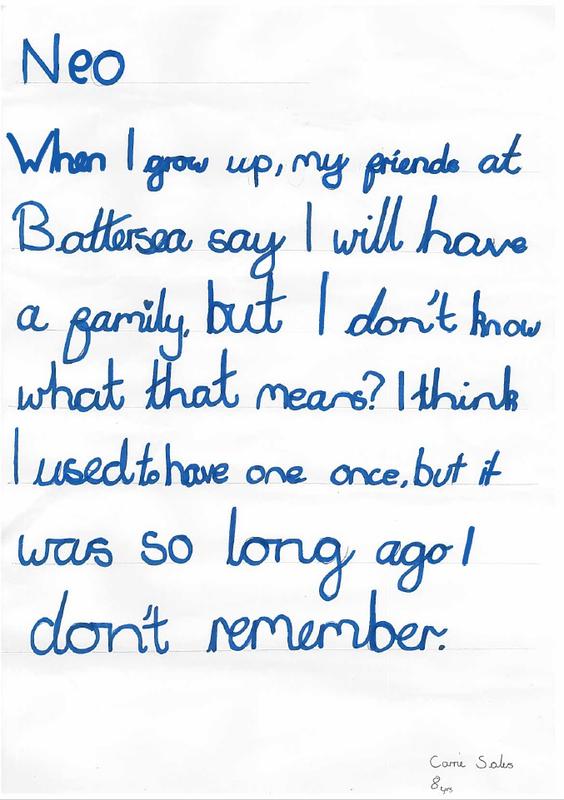 Neo
When I grow up, my friends at
Battersea say I will have
a family, but I don't know
what that means? I think
I used to have one once, but it
was so long ago I
don't remember.
Carrie Sales
8yrs